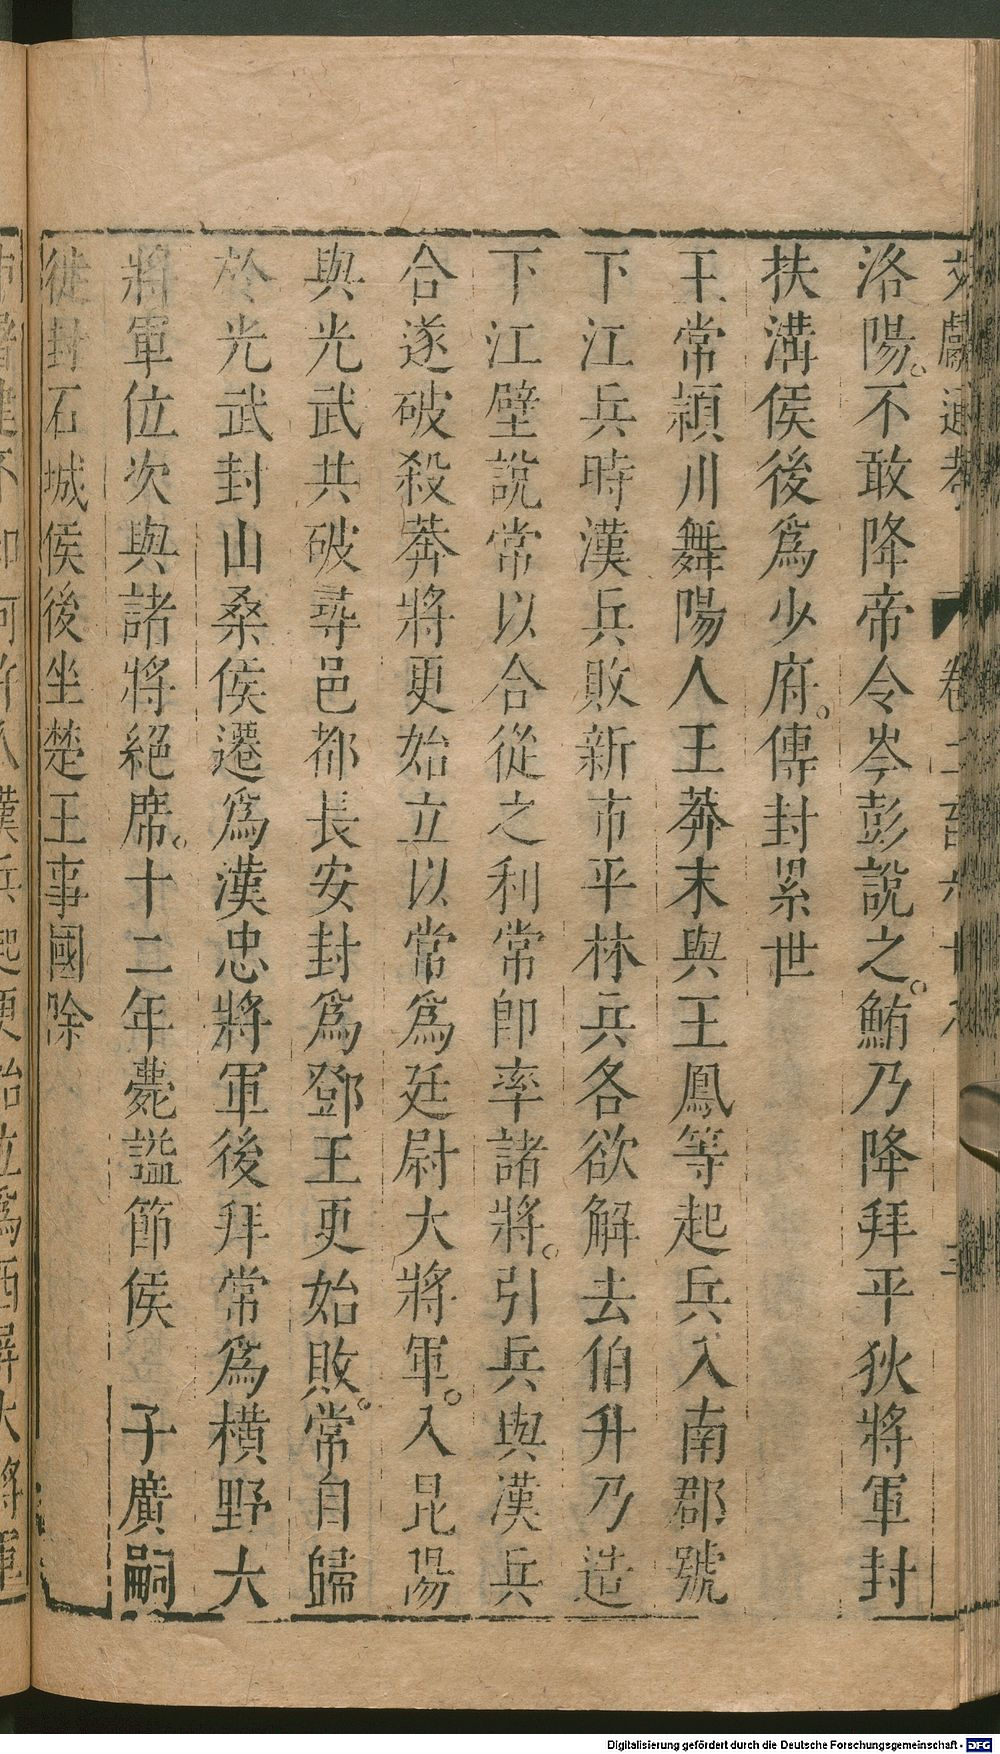 洛陽。不敢降帝令岑彭說之。鮪乃降拜平狄將軍封
扶溝侯後爲少府。傳封累世
王常潁川舞陽人王莽末與王鳳等起兵入南郡號
下江兵時漢兵敗新市平林兵各欲解去伯升乃造
下江壁說常以合從之利常卽率諸將。引兵與漢兵
合遂破殺莽將更始立以常爲廷尉大將軍。入昆陽
與光武共破尋邑都長安封爲鄧王更始敗。常自歸
於光武封山桑侯遷爲漢忠將軍後拜常爲橫野大
將軍位次與諸將絕席。十二年薨諡節侯 子廣嗣
徙封石城侯後坐楚王事國除
Digitalisierung gefördert durch die Deutsche Forschungsgemeinschaft - DFG